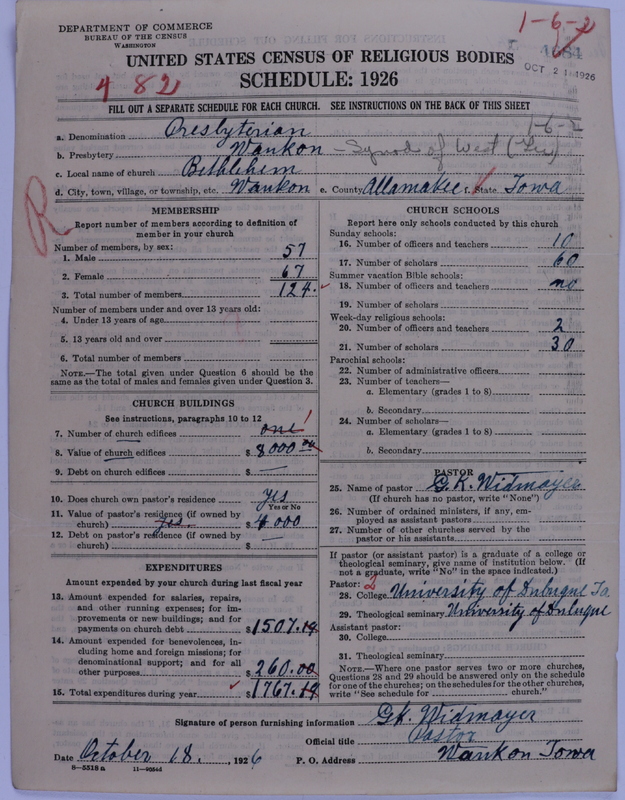 DEPARTMENT OF COMMERCE
BUREAU OF THE CENSUS
WASHINGTON
1-6-2
1684
OCT 21 1926
UNITED STATES CENSUS OF RELIGIOUS BODIES
SCHEDULE: 1926
482
FILL OUT A SEPARATE SCHEDULE FOR EACH CHURCH. SEE INSTRUCTIONS ON THE BACK OF THIS SHEET
a. Denomination Presbyterian 1-6-2
b. Presbytery Waukon - Synod of West (Ger)
c. Local name of church Bethlehem
d. City, town, village, or township, etc. Waukon e. County Allamakee f. State Iowa
R
MEMBERSHIP
Report number of members according to definition of
member in your church
Number of members, by sex:
1. Male 57
2. Female 67
3. Total number of members 124.
Number of members under and over 13 years old:
4. Under 13 years of age
5. 13 years old and over
6. Total number of members
NOTE.—The total given under Question 6 should be
same as the total of males and females given under Question 3.
CHURCH BUILDINGS
See instructions, paragraphs 10 to 12
7. Number of church edifices one 1
8. Value of church edifices $ 8000 00
9. Debt on church edifices $ —
10. Does church own pastor's residence yes
Yes or No
11. Value of pastor's residence (if owned by
church) yes. $ 4000
12. Debt on pastor's residence (if owned by
church) $ —
EXPENDITURES
Amount expended by your church during last fiscal year
13. Amount expended for salaries, repairs,
and other running expenses; for im-
provements or new buildings; and for
payments on church debt $ 1507.19
14. Amount expended for benevolences, in-
cluding home and foreign missions; for
denominational support; and for all
other purposes $ 260.00
15. Total expenditures during year $ 1767.19
CHURCH SCHOOLS
Report here only schools conducted by this church
Sunday schools:
16. Number of officers and teachers 10
17. Number of scholars 60
Summer vacation Bible schools:
18. Number of officers and teachers no
19. Number of scholars
Week-day religious schools:
20. Number of officers and teachers 2
21. Number of scholars 30
Parochial schools:
22. Number of administrative officers
23. Number of teachers—
a. Elementary (grades 1 to 8)
b. Secondary
24. Number of scholars—
a. Elementary (grades 1 to 8)
b. Secondary
PASTOR
25. Name of pastor G.K. Widmayer
(If church has no pastor, write "None")
26. Number of ordained ministers, if any, em-
ployed as assistant pastors
27. Number of other churches served by the
pastor or his assistants
If pastor (or assistant pastor) is a graduate of a college or
theological seminary, give name of institution below. (If
not a graduate, write "No" in the space indicated.)
Pastor: 2
28. College University of Dubuque Ia.
29. Theological seminary University of Dubuque
Assistant pastor:
30. College
31. Theological seminary
NOTE.—Where one pastor serves two or more churches,
Questions 28 and 29 should be answered only on the schedule
for one of the churches; on the schedules for the other churches,
write "See schedule for church."
Signature of person furnishing information G.K. Widmayer
Official title Pastor
Date October 18. , 1926 P. O. Address Waukon Iowa
8—5518 a 11—9056d